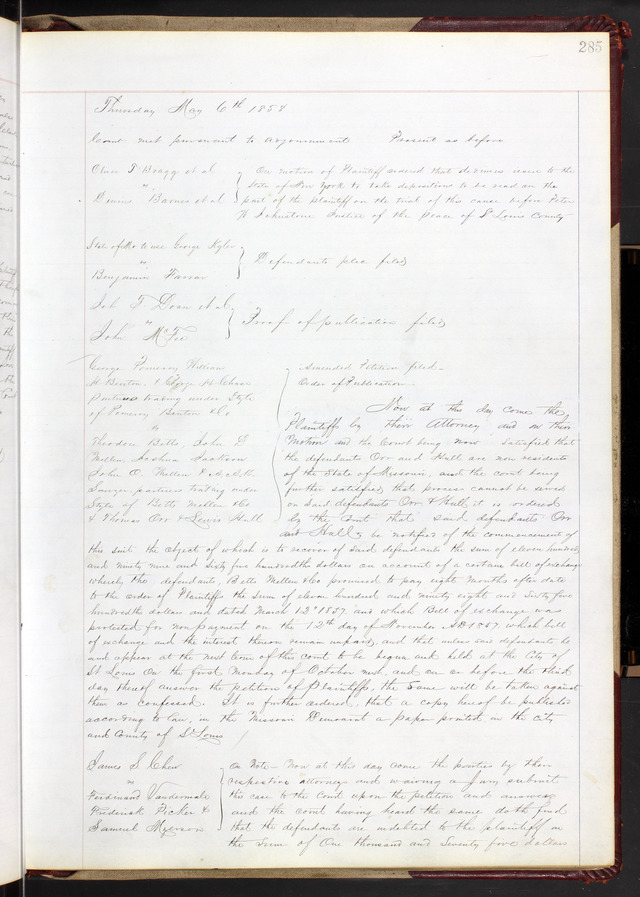 285
Thursday May 6th 1858
Court met pursuant to adjournment Present as before
T Bragg et al
vs
Dennis Barnes et al
On motion of Plaintiff ordered that dedimus issue to the
State of New York to take depositions to be read on the
part of the plaintiff on the trial of this cause before Peter
W Johnstone Justice of the peace of St Louis County
State of Mo to use George Kyler
vs
Benjamin Farrar
Defendants plea filed
Joh T Doan et al
vs
John McFee
Proof of publication filed
George Pomeroy William
H Benton & George H Chase
partners trading under Style
of Pomeroy Benton & Co
vs
Theodore Betts, John G
Mellen Joshua Jackson
John O. Mellen &
Sawyer partners trading under
Style of Betts Mellen & Co
& Thomas Orr & Lewis Hull
Amended Petition filed.
Order of Publication
Now at this day comes the
Plaintiffs by their Attorney and on their
motion and the Court being now satisfied that
the defendants Orr and Hull are non residents
of the State of Missouri, and the court being
further satisfied that process cannot be served
on said defendants Orr & Hull, it is ordered
by the Court that said defendants Orr
and Hull, be notified of the commencement of
this suit the object of which is to recover of said defendants the sum of eleven hundred
and ninty nine and sixty five hundredths dollars on account of a certain bill of exchange
whereby the defendants, Betts Mellen & Co promised to pay eight months after date
to the order of Plaintiff the sum of eleven hundred and ninety eight and sixty five
hundredths dollars and dated March 12th 1857. and which Bill of exchange was
protested for non payment on the 12th day of November AD 1857. which bill
of exchange and the interest thereon remain unpaid, and that unless said defendants be
and appear at the next term of this court to be begun and held at the City of
St Louis On the first Monday of October next, and on or before the third
day thereof answer the petition of Plaintiffs, the same will be taken against
them as confessed. It is further ordered, that a copy hereof be published
according to law, in the Missouri Democrat a paper printed in the city
and County of St Louis
James S Chew
vs
Ferdinand Vandermale
Frederick Picker &
Samuel Myerson
On Note - Now at this day come the parties by their
respective attorneys and waiving a Jury submit
this case to the Court upon the petition and answer
and the court having heard the same doth find
that the defendants are indebted to the plaintiff in
the sum of One thousand and Seventy five dollars